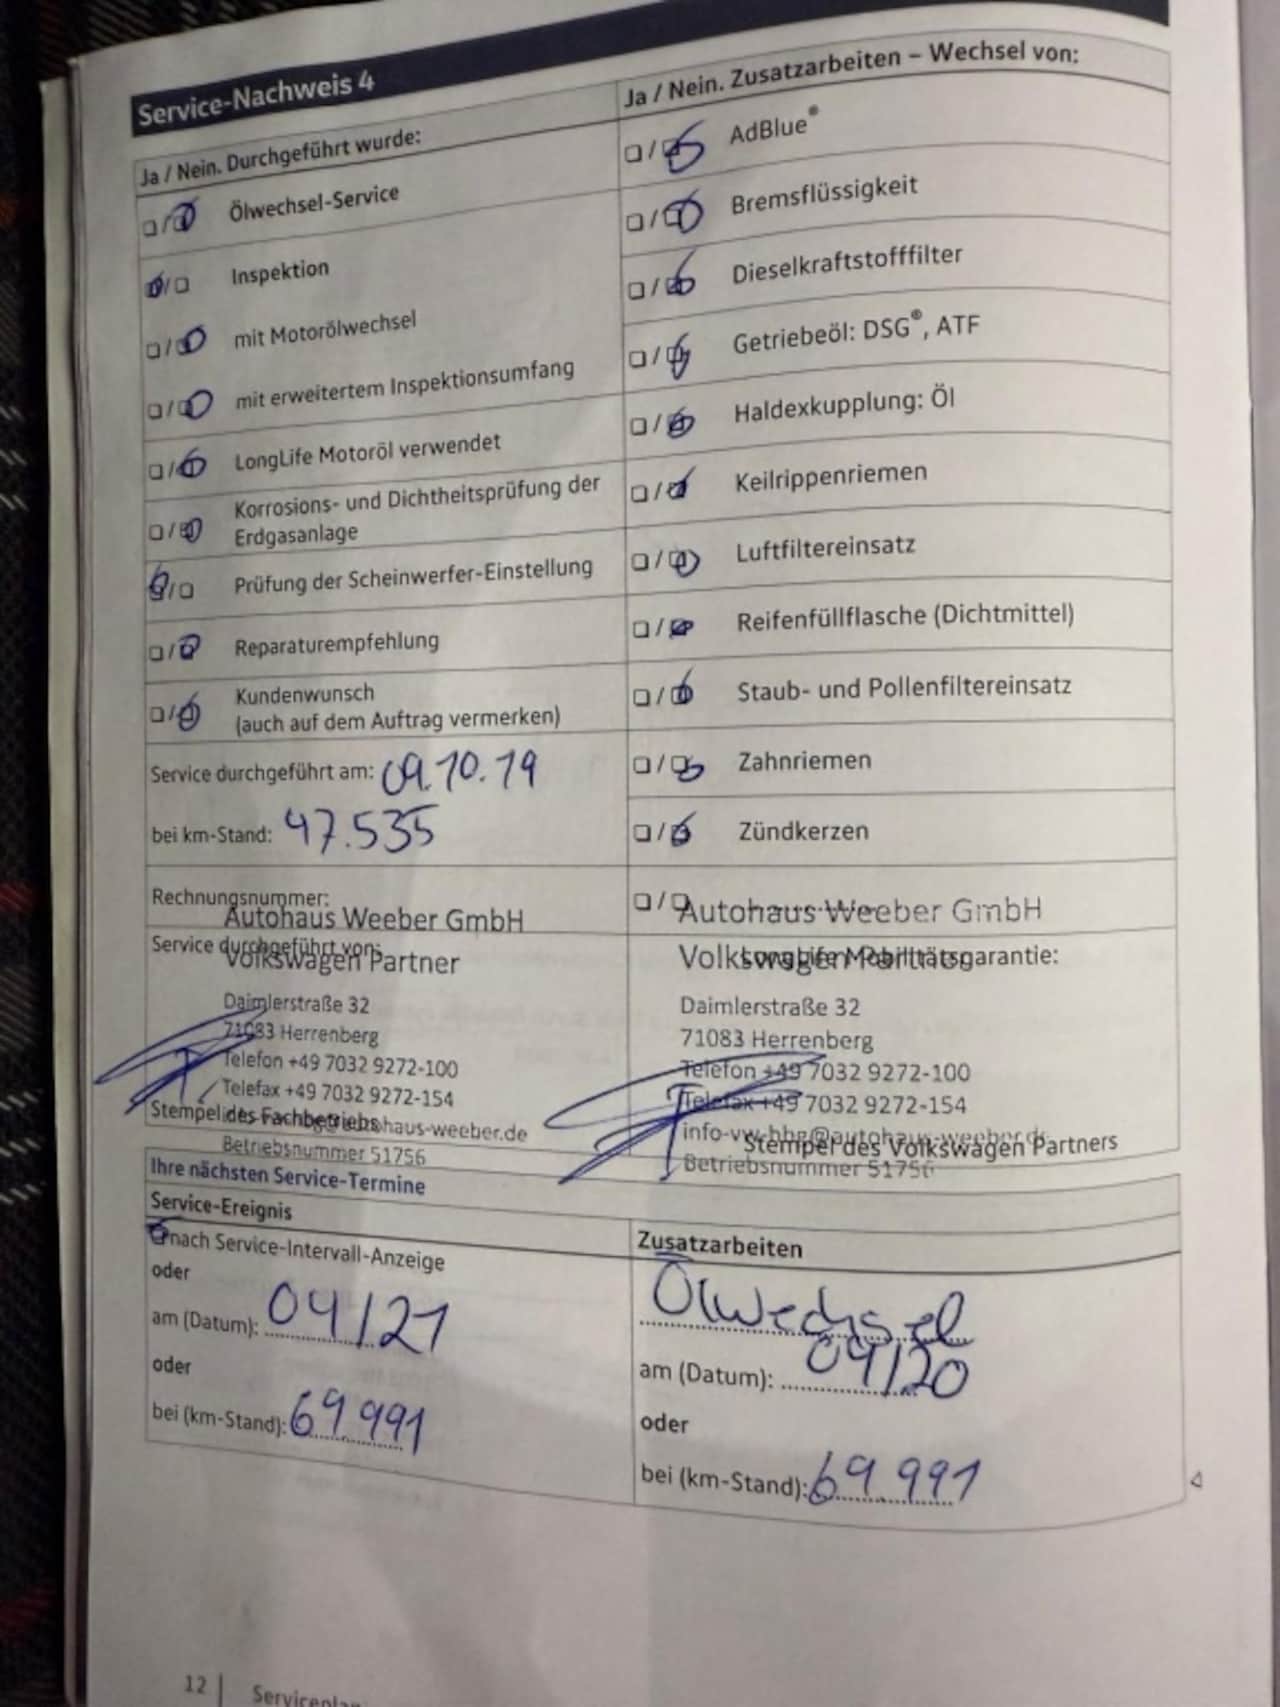 Service-Nachweis 4
Ja / Nein. Durchgeführt wurde:
❏/❏ Ölwechsel-Service
❏/❏ Inspektion
❏/❏ mit Motorölwechsel
❏/❏ mit erweitertem Inspektionsumfang
❏/❏ LongLife Motoröl verwendet
❏/❏ Korrosions- und Dichtheitsprüfung der
Erdgasanlage
❏/❏ Prüfung der Scheinwerfer-Einstellung
❏/❏ Reparaturempfehlung
❏/❏ Kundenwunsch
(auch auf dem Auftrag vermerken)
Service durchgeführt am: 09.10.19
bei km-Stand: 47.535
Rechnungsnummer:
Autohaus Weeber GmbH
Service durchgeführt von:
Volkswagen Partner
Daimlerstraße 32
71083 Herrenberg
Telefon +49 7032 9272-100
Telefax +49 7032 9272-154
Stempel des Fachbetriebs
@autohaus-weeber.de
Betriebsnummer 51756
Ja / Nein. Zusatzarbeiten – Wechsel von:
❏/❏ AdBlue®
❏/❏ Bremsflüssigkeit
❏/❏ Dieselkraftstofffilter
❏/❏ Getriebeöl: DSG®, ATF
❏/❏ Haldexkupplung: Öl
❏/❏ Keilrippenriemen
❏/❏ Luftfiltereinsatz
❏/❏ Reifenfüllflasche (Dichtmittel)
❏/❏ Staub- und Pollenfiltereinsatz
❏/❏ Zahnriemen
❏/❏ Zündkerzen
❏/❏
Autohaus Weeber GmbH
LongLife Mobilitätsgarantie:
Volkswagen Partner
Daimlerstraße 32
71083 Herrenberg
Telefon +49 7032 9272-100
Telefax +49 7032 9272-154
info-vw-hbg@autohaus-weeber.de
Stempel des Volkswagen Partners
Betriebsnummer 51756
Ihre nächsten Service-Termine
Service-Ereignis
❏ nach Service-Intervall-Anzeige
oder
am (Datum): 04/21
oder
bei (km-Stand): 69 991
Zusatzarbeiten
Ölwechsel
am (Datum): 04/20
oder
bei (km-Stand): 69 991
12 | Serviceplan